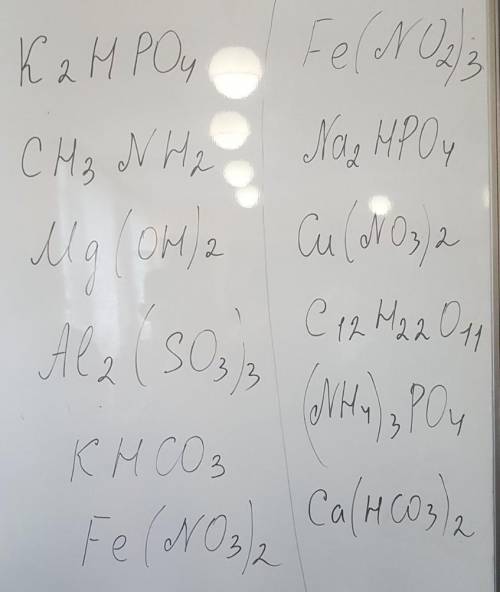 K2HPO4
CH3NH2
Mg(OH)2
Al2(SO3)3
KHCO3
Fe(NO3)2
Fe(NO2)3
Na2HPO4
Cu(NO3)2
C12H22O11
(NH4)3PO4
Ca(HCO3)2